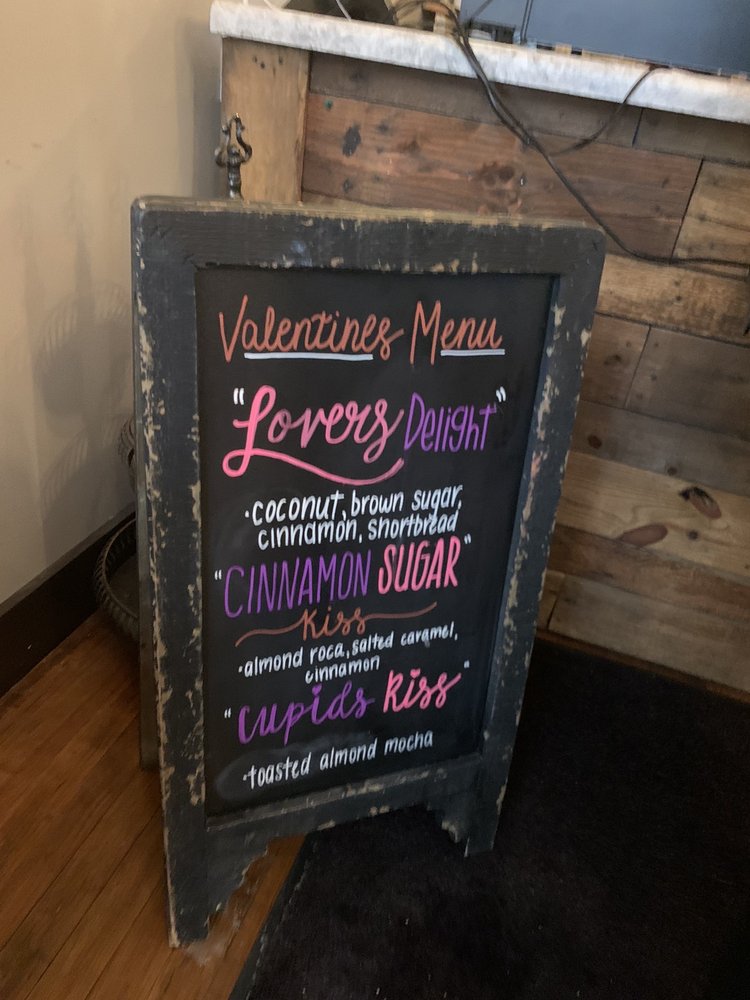 Valentines Menu
"Lovers Delight"
·coconut, brown sugar,
cinnamon, shortbread
"CINNAMON SUGAR"
Kiss
·almond roca, salted caramel,
cinnamon
"Cupids Kiss"
·toasted almond mocha